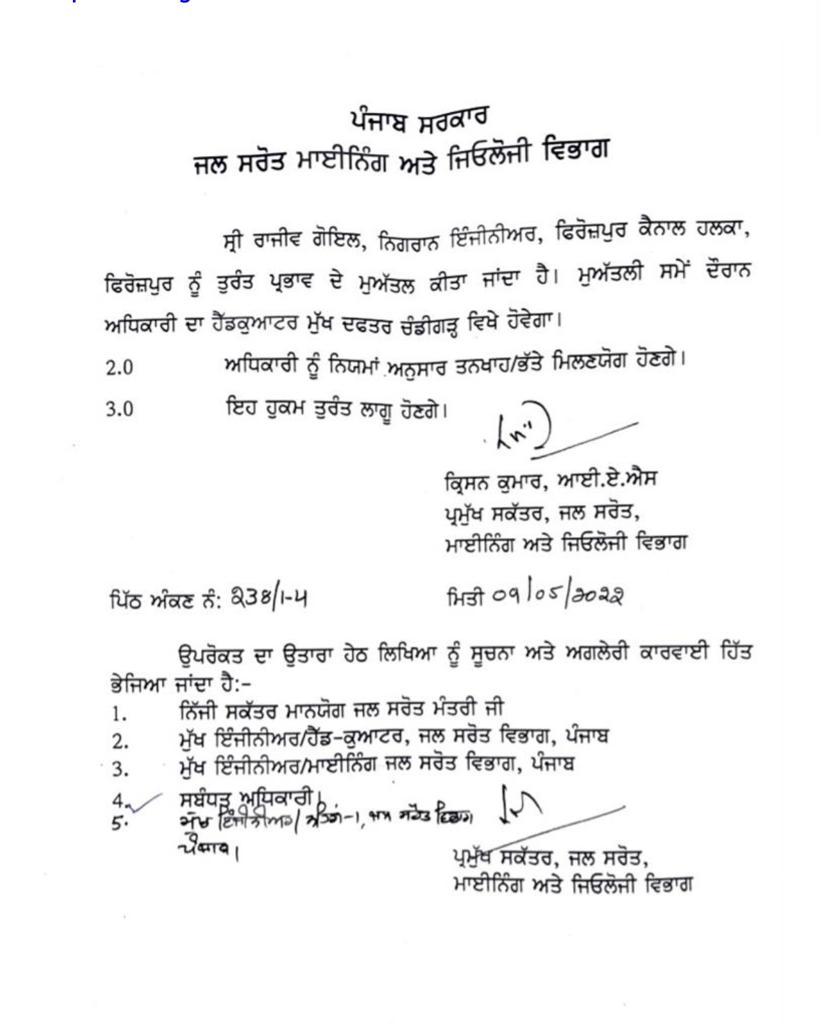 ਪੰਜਾਬ ਸਰਕਾਰ
ਜਲ ਸਰੋਤ ਮਾਈਨਿੰਗ ਅਤੇ ਜਿਓਲੋਜੀ ਵਿਭਾਗ
ਸ੍ਰੀ ਰਾਜੀਵ ਗੋਇਲ, ਨਿਗਰਾਨ ਇੰਜੀਨੀਅਰ, ਫਿਰੋਜ਼ਪੁਰ ਕੈਨਾਲ ਹਲਕਾ,
ਫਿਰੋਜ਼ਪੁਰ ਨੂੰ ਤੁਰੰਤ ਪ੍ਰਭਾਵ ਦੇ ਮੁਅੱਤਲ ਕੀਤਾ ਜਾਂਦਾ ਹੈ। ਮੁਅੱਤਲੀ ਸਮੇਂ ਦੌਰਾਨ
ਅਧਿਕਾਰੀ ਦਾ ਹੈੱਡਕੁਆਟਰ ਮੁੱਖ ਦਫਤਰ ਚੰਡੀਗੜ੍ਹ ਵਿਖੇ ਹੋਵੇਗਾ।
2.0 ਅਧਿਕਾਰੀ ਨੂੰ ਨਿਯਮਾਂ ਅਨੁਸਾਰ ਤਨਖਾਹ/ਭੱਤੇ ਮਿਲਣਯੋਗ ਹੋਣਗੇ।
3.0 ਇਹ ਹੁਕਮ ਤੁਰੰਤ ਲਾਗੂ ਹੋਣਗੇ।
ਕ੍ਰਿਸਨ ਕੁਮਾਰ, ਆਈ.ਏ.ਐਸ
ਪ੍ਰਮੁੱਖ ਸਕੱਤਰ, ਜਲ ਸਰੋਤ,
ਮਾਈਨਿੰਗ ਅਤੇ ਜਿਓਲੋਜੀ ਵਿਭਾਗ
ਪਿੱਠ ਅੰਕਣ ਨੰ: 238/1-4 ਮਿਤੀ 09/05/2022
ਉਪਰੋਕਤ ਦਾ ਉਤਾਰਾ ਹੇਠ ਲਿਖਿਆ ਨੂੰ ਸੂਚਨਾ ਅਤੇ ਅਗਲੇਰੀ ਕਾਰਵਾਈ ਹਿੱਤ
ਭੇਜਿਆ ਜਾਂਦਾ ਹੈ:-
1. ਨਿੱਜੀ ਸਕੱਤਰ ਮਾਨਯੋਗ ਜਲ ਸਰੋਤ ਮੰਤਰੀ ਜੀ
2. ਮੁੱਖ ਇੰਜੀਨੀਅਰ/ਹੈੱਡ-ਕੁਆਟਰ, ਜਲ ਸਰੋਤ ਵਿਭਾਗ, ਪੰਜਾਬ
3. ਮੁੱਖ ਇੰਜੀਨੀਅਰ/ਮਾਈਨਿੰਗ ਜਲ ਸਰੋਤ ਵਿਭਾਗ, ਪੰਜਾਬ
4. ਸਬੰਧਤ ਅਧਿਕਾਰੀ।
5. ਮੁੱਖ ਇੰਜੀਨੀਅਰ/ ਜਲ ਸਰੋਤ ਵਿਭਾਗ
ਪੰਜਾਬ।
ਪ੍ਰਮੁੱਖ ਸਕੱਤਰ, ਜਲ ਸਰੋਤ,
ਮਾਈਨਿੰਗ ਅਤੇ ਜਿਓਲੋਜੀ ਵਿਭਾਗ